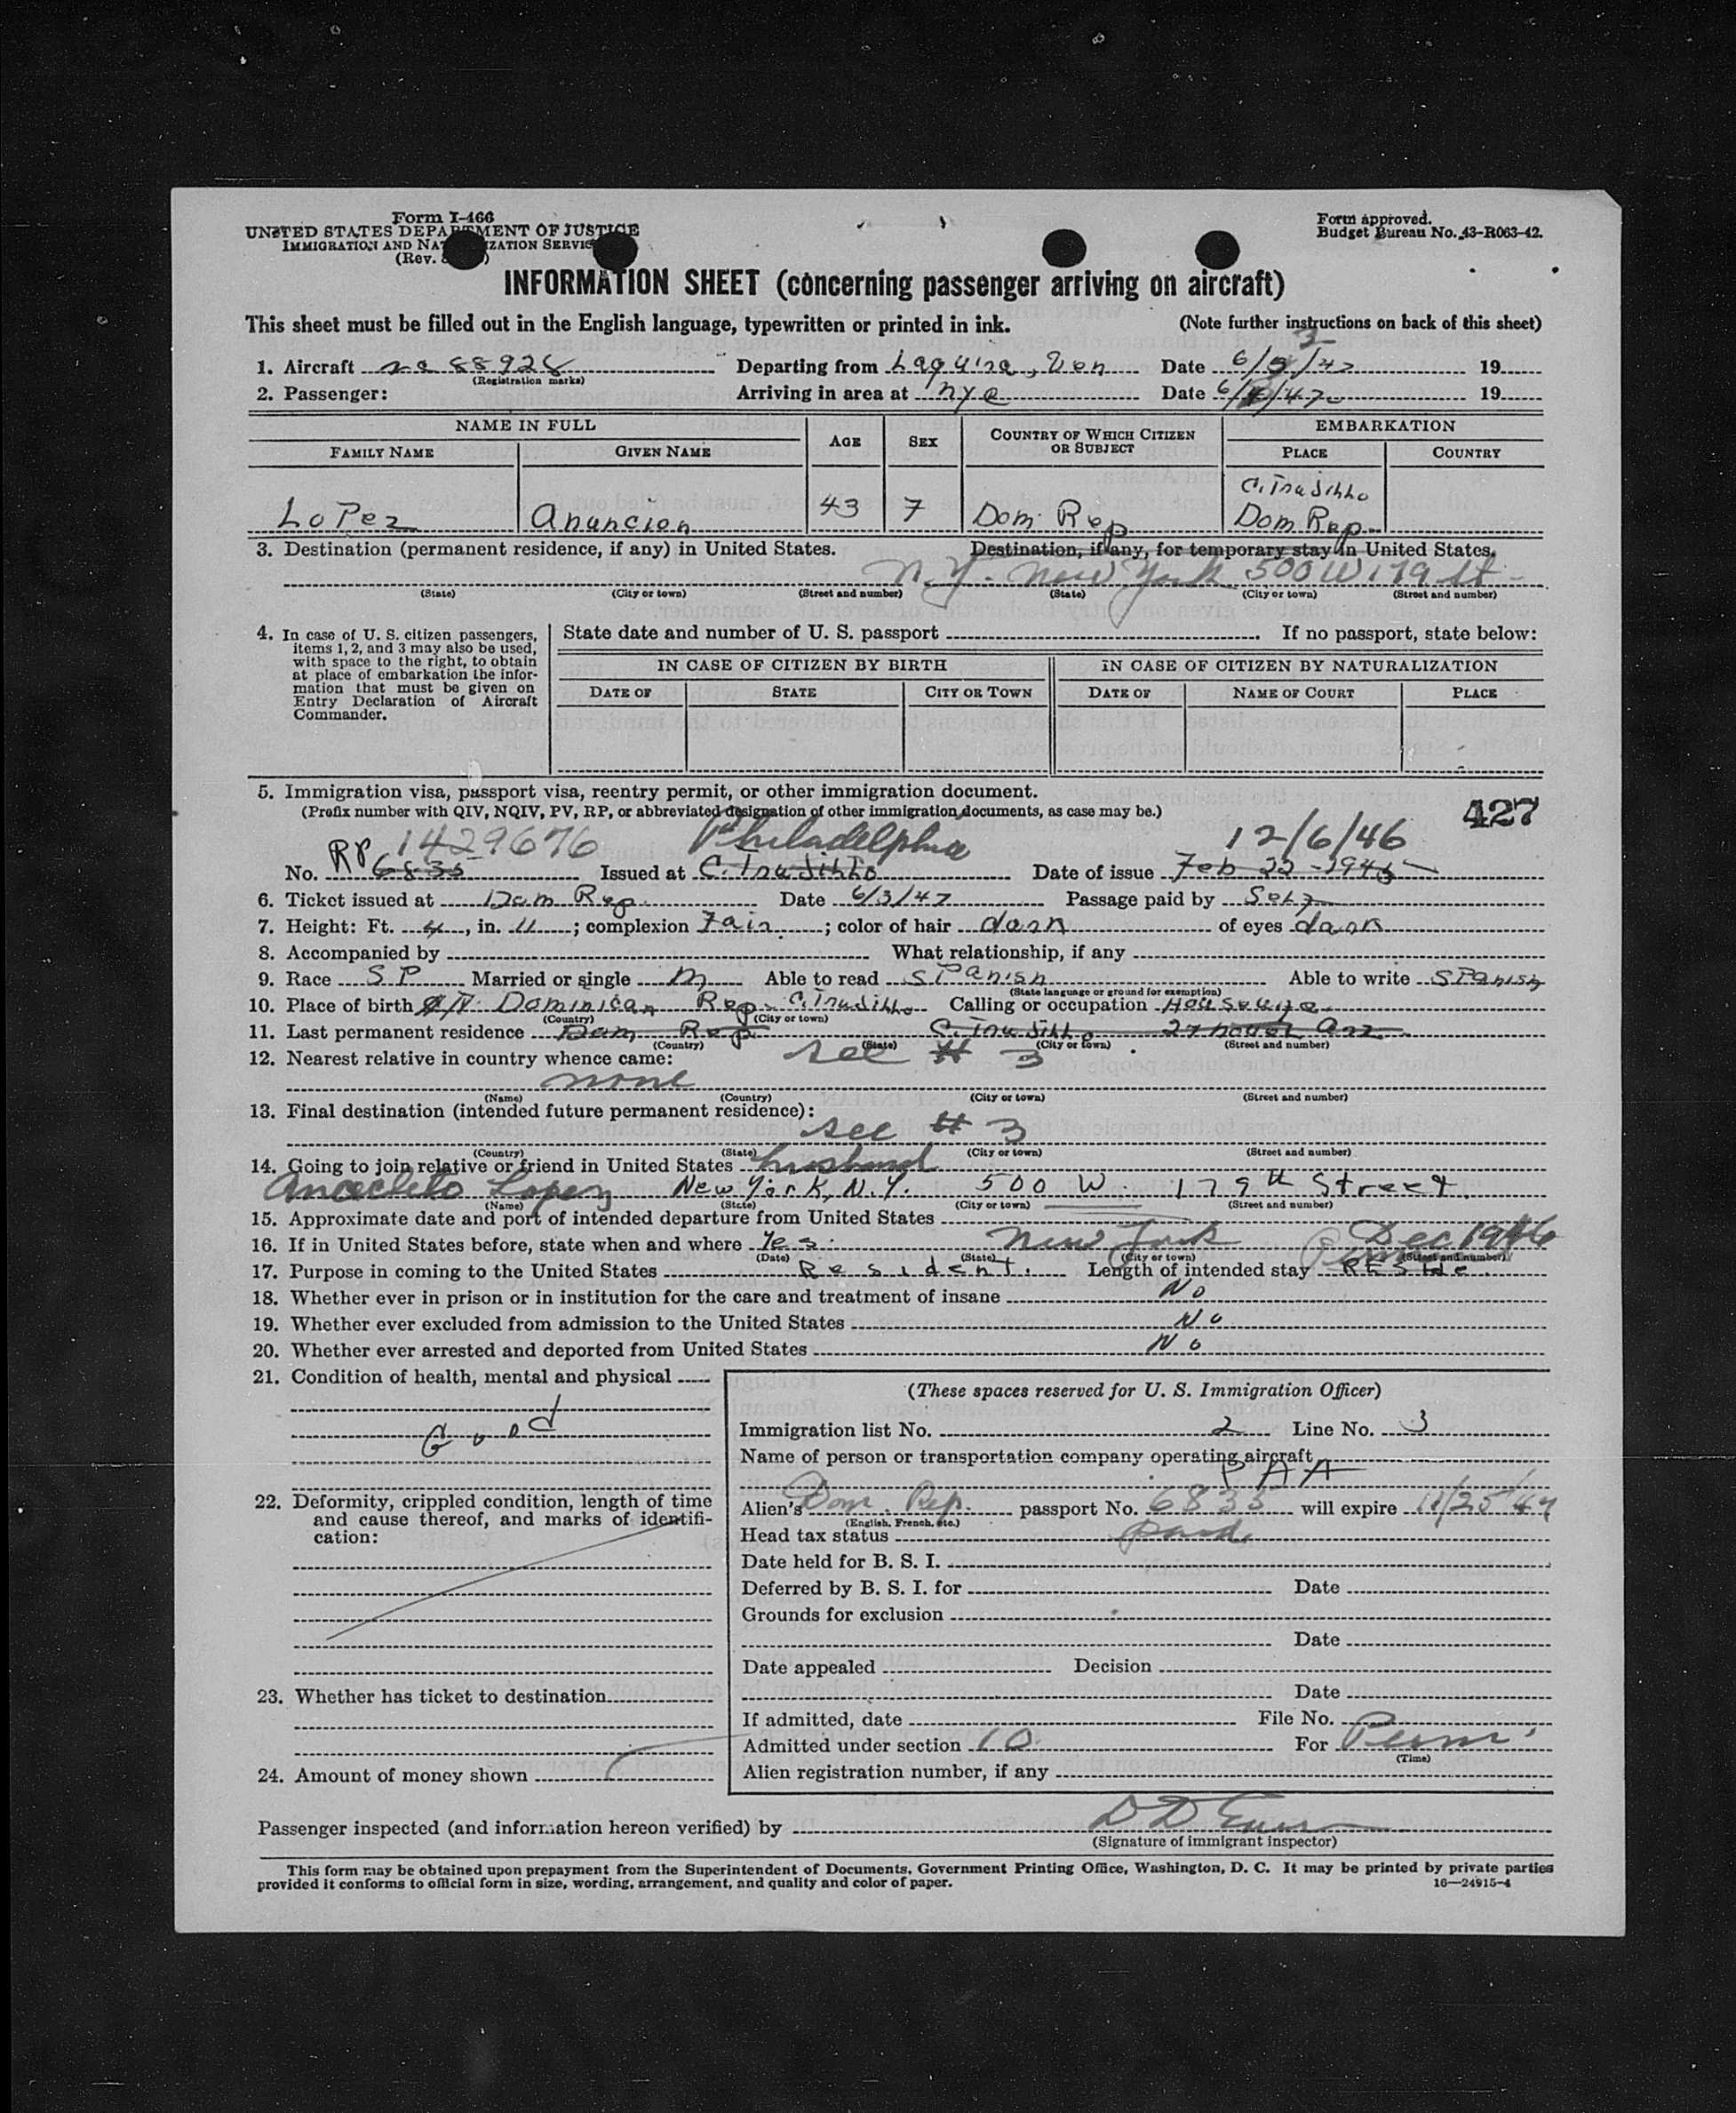 Form I-466
UNITED STATES DEPARTMENT OF JUSTICE
IMMIGRATION AND NATURALIZATION SERVICE
(Rev. )
Form approved.
Budget Bureau No. 43-R063-42.
INFORMATION SHEET (concerning passenger arriving on aircraft)
This sheet must be filled out in the English language, typewritten or printed in ink. (Note further instructions on back of this sheet)
1. Aircraft nc 88928 Departing from Laguira, Ven Date 6/3/47 19
(Registration marks)
2. Passenger: Arriving in area at nyc Date 6/4/47 19
NAME IN FULL AGE SEX COUNTRY OF WHICH CITIZEN OR SUBJECT EMBARKATION
FAMILY NAME GIVEN NAME PLACE COUNTRY
C. Trujillo
LoPez Anuncion 43 F Dom Rep Dom Rep.
3. Destination (permanent residence, if any) in United States. Destination, if any, for temporary stay in United States.
N.Y. New York 500 W 179 St
(State) (City or town) (Street and number) (State) (City or town) (Street and number)
4. In case of U. S. citizen passengers, items 1, 2, and 3 may also be used, with space to the right, to obtain at place of embarkation the information that must be given on Entry Declaration of Aircraft Commander.
State date and number of U. S. passport . If no passport, state below:
IN CASE OF CITIZEN BY BIRTH IN CASE OF CITIZEN BY NATURALIZATION
DATE OF STATE CITY OR TOWN DATE OF NAME OF COURT PLACE
5. Immigration visa, passport visa, reentry permit, or other immigration document.
(Prefix number with QIV, NQIV, PV, RP, or abbreviated designation of other immigration documents, as case may be.) 427
RP 1429676 Philadelphia 12/6/46
No. 6835 Issued at C. Trujillo Date of issue Feb 22-1945
6. Ticket issued at Dom Rep. Date 6/3/47 Passage paid by Self
7. Height: Ft. 4, in. 11; complexion Fair; color of hair dark of eyes dark
8. Accompanied by What relationship, if any
9. Race SP Married or single M Able to read SPanish Able to write SPanish
(State language or ground for exemption)
10. Place of birth Dominican Rep. C. Trujillo Calling or occupation Housewife
(Country) (City or town)
11. Last permanent residence Dom Rep C. Trujillo
(Country) (State) (City or town) (Street and number)
12. Nearest relative in country whence came: see # 3
none
(Name) (Country) (City or town) (Street and number)
13. Final destination (intended future permanent residence):
see # 3
(Country) (State) (City or town) (Street and number)
14. Going to join relative or friend in United States husband
Anacleto Lopez New York, N.Y. 500 W. 179th Street.
(Name) (State) (City or town) (Street and number)
15. Approximate date and port of intended departure from United States
16. If in United States before, state when and where Yes. New York Dec 1946
(Date) (State) (City or town) (Street and number)
17. Purpose in coming to the United States Resident. Length of intended stay Reside.
18. Whether ever in prison or in institution for the care and treatment of insane No
19. Whether ever excluded from admission to the United States No
20. Whether ever arrested and deported from United States No
21. Condition of health, mental and physical
Good
22. Deformity, crippled condition, length of time and cause thereof, and marks of identification:
23. Whether has ticket to destination
24. Amount of money shown
(These spaces reserved for U. S. Immigration Officer)
Immigration list No. 2 Line No. 3
Name of person or transportation company operating aircraft
PAA
Alien's Dom. Rep. passport No. 6835 will expire 11/25/47
(English, French, etc.)
Head tax status paid
Date held for B. S. I.
Deferred by B. S. I. for Date
Grounds for exclusion
Date
Date appealed Decision
Date
If admitted, date File No.
Admitted under section 10 For Perm.
(Time)
Alien registration number, if any
Passenger inspected (and information hereon verified) by
(Signature of immigrant inspector)
This form may be obtained upon prepayment from the Superintendent of Documents, Government Printing Office, Washington, D. C. It may be printed by private parties
provided it conforms to official form in size, wording, arrangement, and quality and color of paper. 16—24915-4